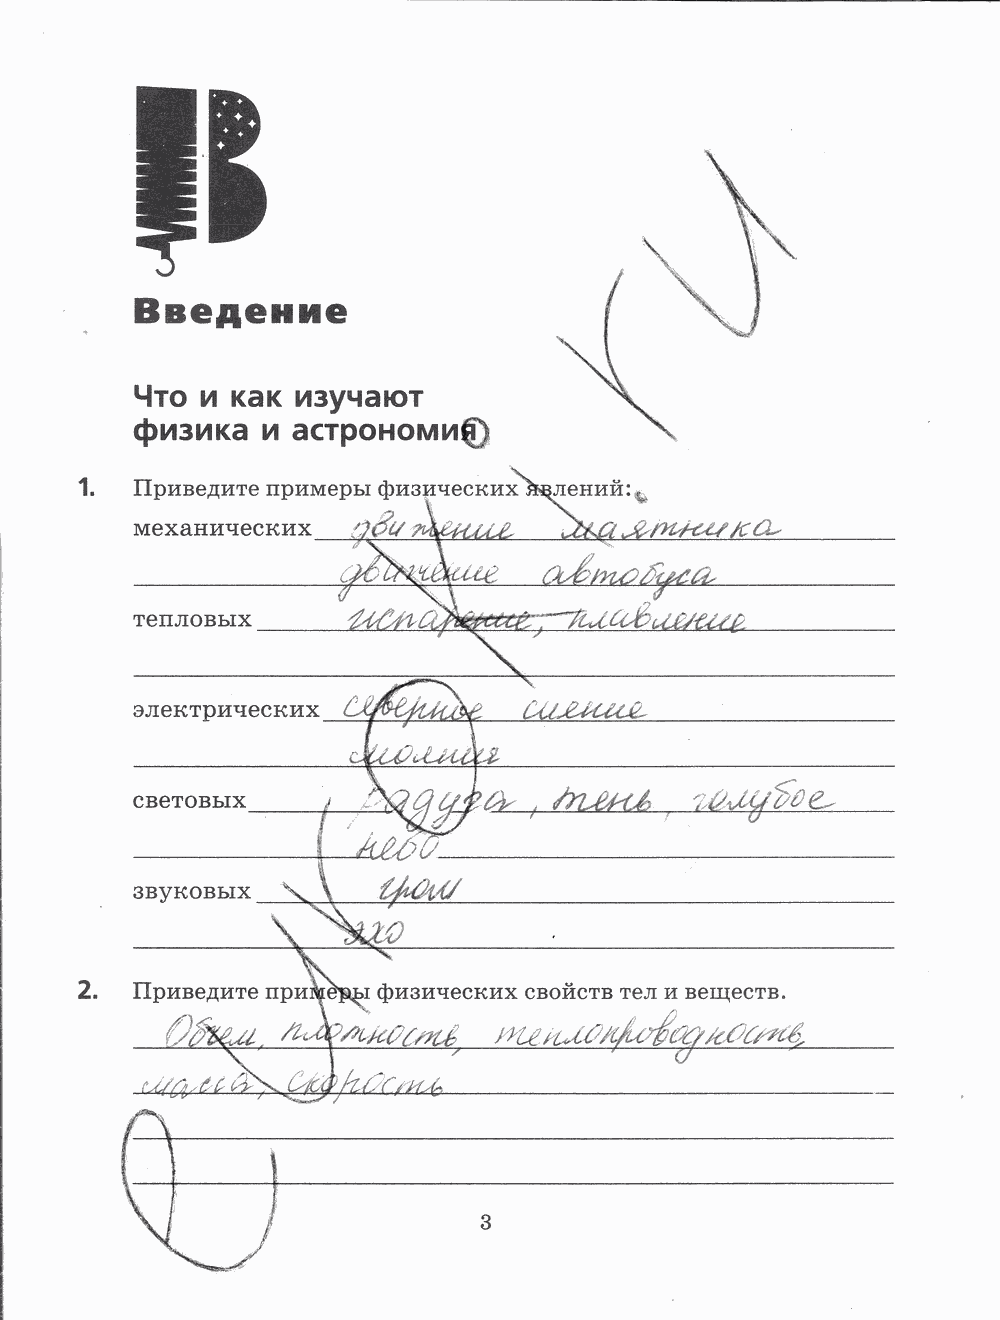 В
Введение
Что и как изучают
физика и астрономия
1. Приведите примеры физических явлений:
механических движение маятника
движение автобуса
тепловых испарение, плавление
электрических северное сияние
молния
световых радуга, тень, голубое
небо
звуковых гром
эхо
2. Приведите примеры физических свойств тел и веществ.
Объем, плотность, теплопроводность,
масса, скорость
3